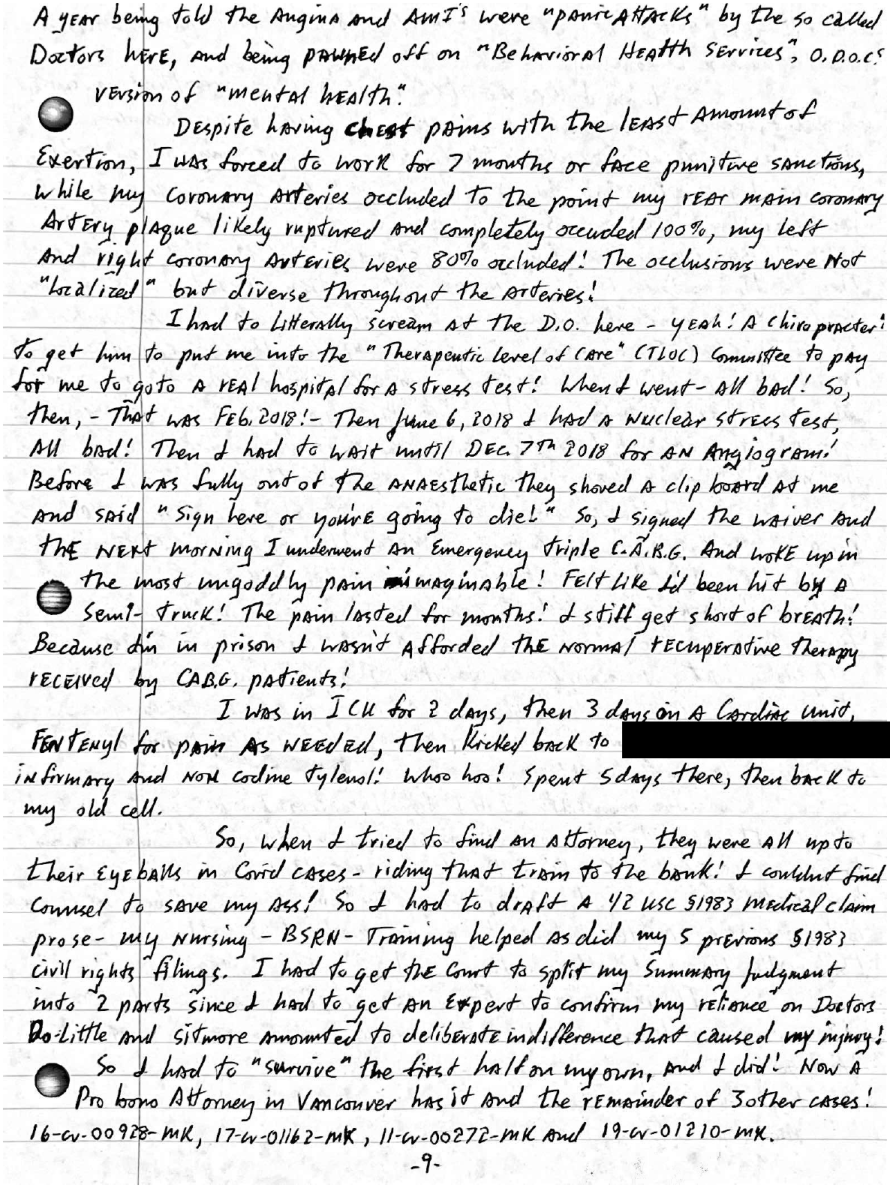 A year being told the Angina and AMI's were "panic Attacks" by the so called
Doctors here, and being pawned off on "Behavioral Health Services", O.D.O.C.'s
version of "mental health".
Despite having chest pains with the least Amount of
Exertion, I was forced to work for 7 months or face punitive sanctions,
while my coronary Arteries occluded to the point my rear main coronary
Artery plaque likely ruptured and completely occuded 100%, my left
And right coronary Arteries were 80% occluded! The occlusions were Not
"localized" but diverse throughout the Arteries!
I had to Litterally scream at the D.O. here - yeah! A Chiropracter!
to get him to put me into the "Therapeutic Level of Care" (TLOC) Committee to pay
for me to goto A real hospital for A stress test! When I went - All bad! So,
then, - That was Feb. 2018! - Then June 6, 2018 I had A Nuclear stress test,
All bad! Then I had to wait until DEC. 7TH 2018 for AN Angiogram!
Before I was fully out of the ANAesthetic they shoved A clip board At me
And said "Sign here or you're going to die!" So, I signed the waiver And
the next morning I underwent An Emergency triple C.A.B.G. And woke up in
the most ungoddly pain imaginable! Felt like I'd been hit by A
Semi-truck! The pain lasted for months! I still get short of breath!
Because I'm in prison I wasn't Afforded the normal recuperative therapy
received by CABG. patients!
I was in ICU for 2 days, then 3 days on A Cardiac unit,
FENTENyl for pain AS NEEDED, then Kicked back to
infirmary And NON codine tylenol! Whoo hoo! Spent 5 days there, then back to
my old cell.
So, when I tried to find an Attorney, they were All up to
their Eyeballs in Covid cases - riding that train to the bank! I couldnt find
Counsel to save my Ass! So I had to draft A 42 USC §1983 Medical claim
prose - my Nursing - BSRN - Training helped As did my 5 previous §1983
civil rights filings. I had to get the Court to split my Summary Judgment
into 2 parts since I had to get An Expert to confirm my reliance on Doctors
Do-Little And Sitmore Amounted to deliberate indifference that caused my injury!
So I had to "survive" the first half on my own, And I did! Now A
Pro bono Attorney in Vancouver has it And the remainder of 3 other cases!
16-cv-00928-MK, 17-cv-01162-MK, 11-cv-00272-MK And 19-cv-01210-MK.
-9-